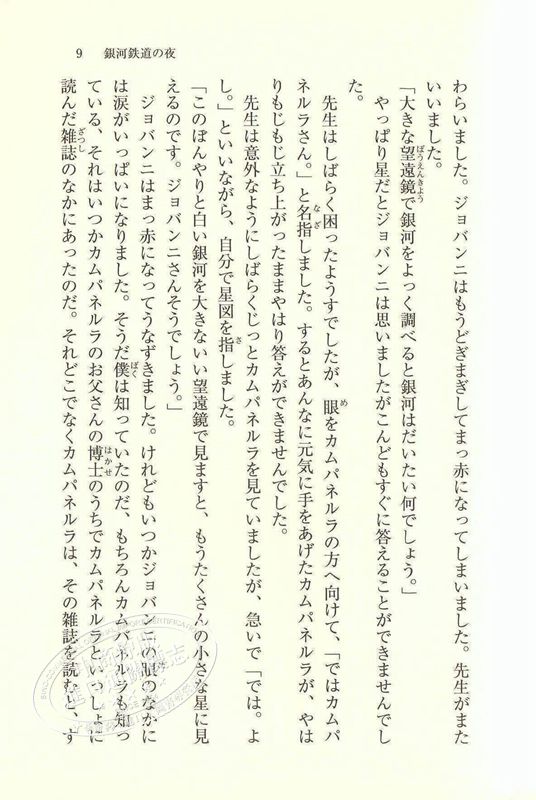 9 銀河鉄道の夜
わらいました。ジョバンニはもうどぎまぎしてまっ赤になってしまいました。先生がまた
いいました。
「大きな望遠鏡で銀河をよっく調べると銀河はだいたい何でしょう。」
やっぱり星だとジョバンニは思いましたがこんどもすぐに答えることができませんでし
た。
先生はしばらく困ったようすでしたが、眼をカムパネルラの方へ向けて、「ではカムパ
ネルラさん。」と名指しました。するとあんなに元気に手をあげたカムパネルラが、やは
りもじもじ立ち上がったままやはり答えができませんでした。
先生は意外なようにしばらくじっとカムパネルラを見ていましたが、急いで「では。よ
し。」といいながら、自分で星図を指しました。
「このぼんやりと白い銀河を大きないい望遠鏡で見ますと、もうたくさんの小さな星に見
えるのです。ジョバンニさんそうでしょう。」
ジョバンニはまっ赤になってうなずきました。けれどもいつかジョバンニの眼のなかに
は涙がいっぱいになりました。そうだ僕は知っていたのだ、もちろんカムパネルラも知っ
ている、それはいつかカムパネルラのお父さんの博士のうちでカムパネルラといっしょに
読んだ雑誌のなかにあったのだ。それどこでなくカムパネルラは、その雑誌を読むと、す